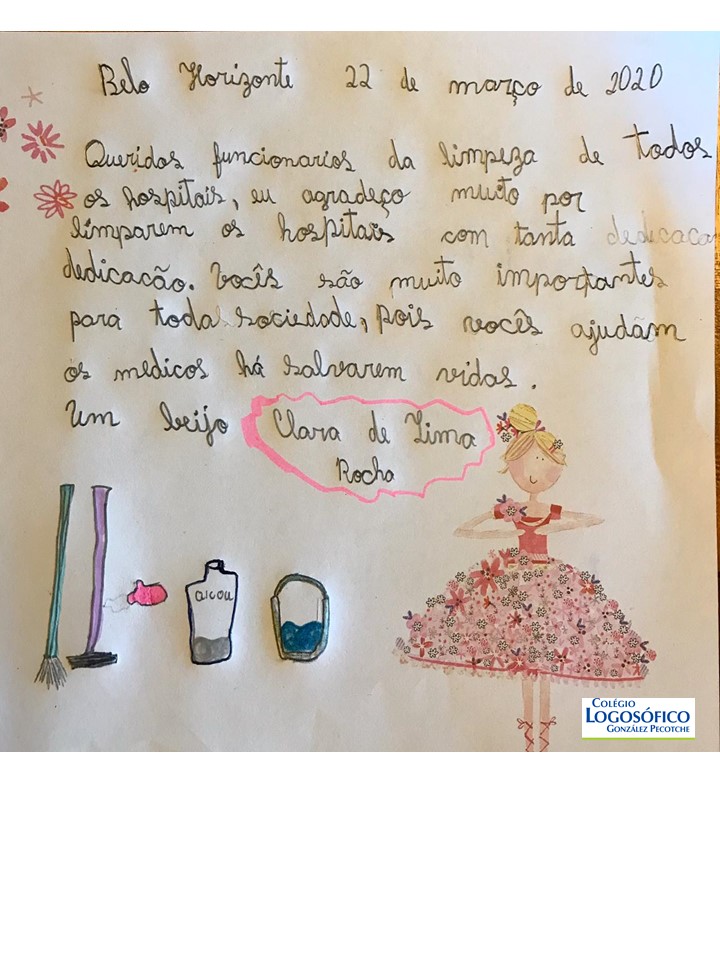 Belo Horizonte 22 de março de 2020
Queridos funcionarios da limpeza de todos
os hospitais, eu agradeço muito por
limparem os hospitais com tanta dedicaca
dedicacão. Vocês são muito importantes
para toda sociedade, pois vocês ajudam
os medicos há salvarem vidas.
Um beijo Clara de Lima
Rocha
alcou
COLÉGIO
LOGOSÓFICO
GONZÁLEZ PECOTCHE